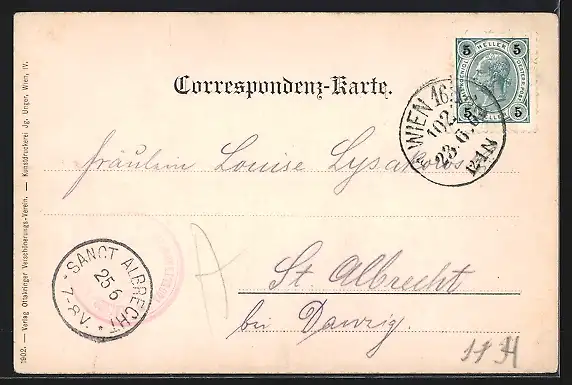 Correspondenz-Karte.
5 HELLER 5
5 HELLER 5
WIEN 16
102
23.6.
12-1N
Fräulein Louise
St. Albrecht
bei Danzig.
SANCT ALBRECHT
25 6
7-8V.
*
1902. — Verlag Ottakringer Verschönerungs-Verein. — Kunstdruckerei Jg. Unger, Wien, IV.